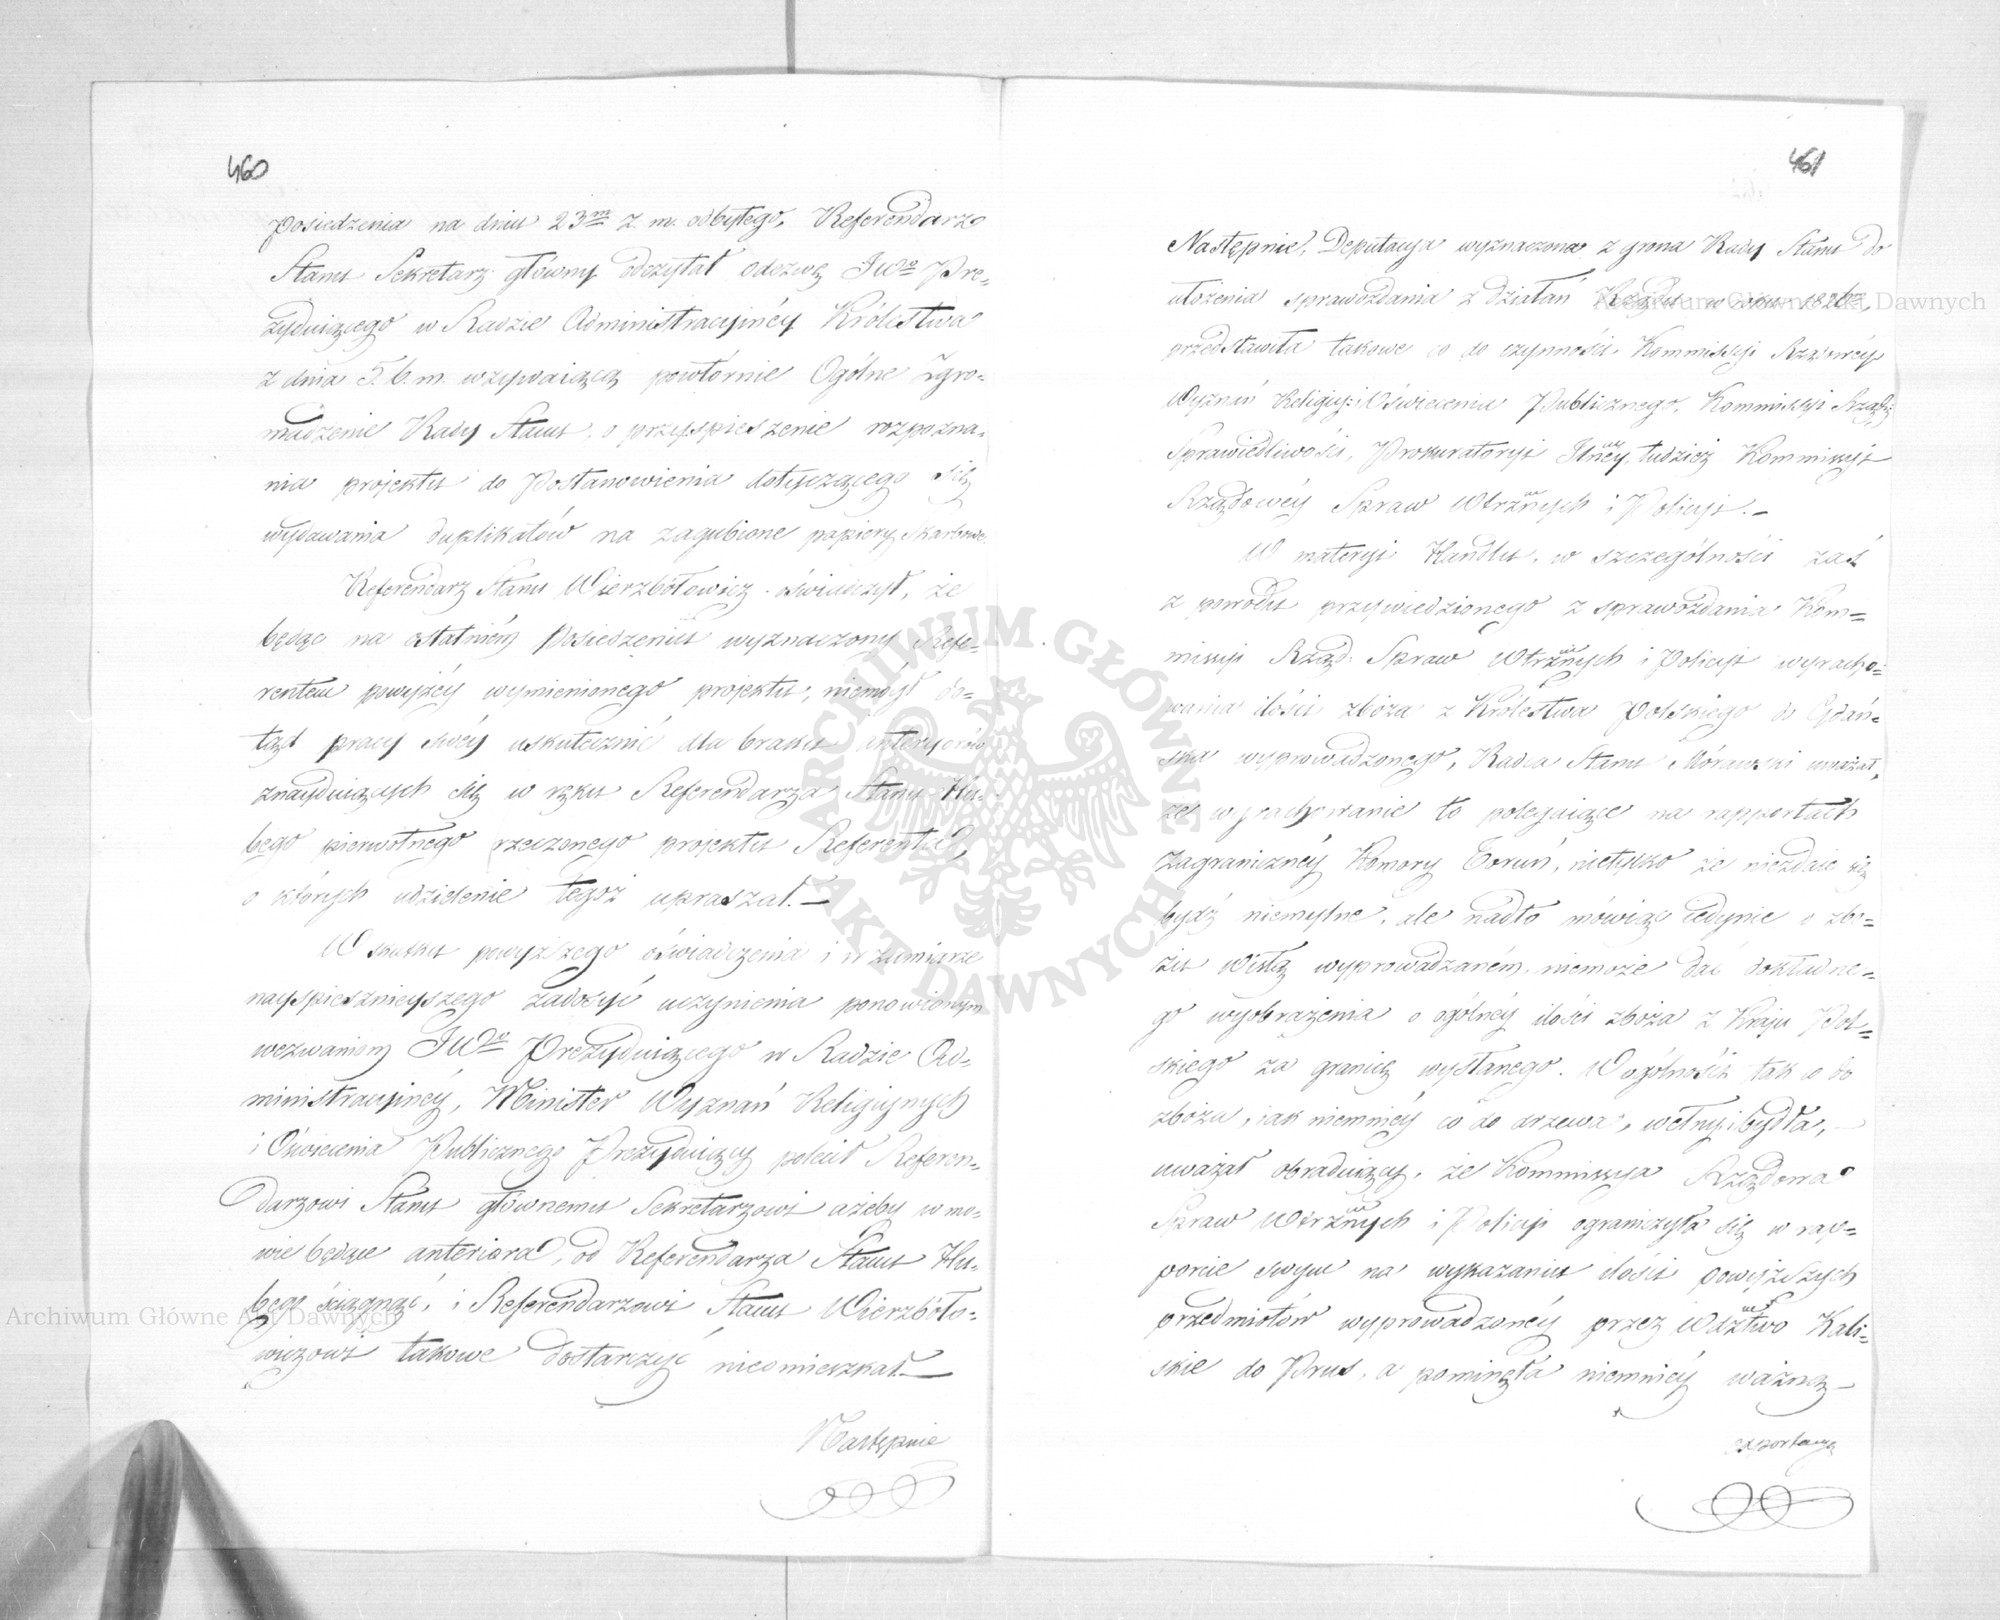 460
Posiedzenia na dniu 23m z. m. odbytego, Referendarz
Stanu Sekretarz główny odczytał odezwę JWo Pre-
zyduiącego w Radzie Administracyinéy Królestwa
z dnia 5. b. m. wzywaiącą powtórnie Ogólne Zgro-
madzenie Rady Stanu, o przyspieszenie rozpozna-
nia projektu do Postanowienia dotyczącego się
wydawania duplikatów na zagubione papiery Skarbowe.
Referendarz Stanu Wierzbołowicz oświadczył, że
będąc na ostatniém Posiedzeniu wyznaczony Refe-
rentem powyżéy wymienionego projektu, niemógł do-
tąd pracy swéy uskutecznić dla braku anteryorów
znayduiących się w ręku Referendarza Stanu Hu-
bego pierwotnego rzeczonego projektu Referenta,
o których udzielenie tegoż upraszał.—
W skutku powyższego oświadczenia i w zamiarze
nayspiesznieyszego zadosyć uczynienia ponowionym
wezwaniom JWo Prezyduiącego w Radzie Ad-
ministracyinéy, Minister Wyznań Religiynych
i Oświecenia Publicznego Prezyduiący polecił Referen-
darzowi Stanu głównemu Sekretarzowi ażeby w mo-
wie będące anteriora, od Referendarza Stanu Hu-
bego ściągnąć, i Referendarzowi Stanu Wierzboło-
wiczowi takowe dostarczyć nieomieszkał.—
Następnie
461
Następnie, Deputacya wyznaczona z grona Rady Stanu do
ułożenia sprawozdania z działań Rządu w roku 1826,
przedstawiła takowe co do czynności Kommissyi Rządowéy
Wyznań Religiy: i Oświecenia Publicznego, Kommissyi Rządo:
Sprawiedliwości, Prokuratoryi Jlnéy, tudzież Kommissyi
Rządowéy Spraw Wtrznych i Policyi.—
W materyi Handlu, w szczególności zaś
z powodu przywiedzionego z sprawozdania Kom-
missyi Rząd: Spraw Wtrznych i Policyi wyracho-
wania ilości zboża z Królestwa Polskiego do Gdań-
ska wyprowadzonego, Radca Stanu Morawski uważał,
że wyrachowanie to polegaiące na rapportach
Zagranicznéy Komory Toruń, nietylko że niezdaie się
bydź niemylne, ale nadto mówiąc iedynie o zbo-
żu Wisłą wyprowadzaném, niemoże dać dokładne-
go wyobrażenia o ogólnéy ilości zboża z Kraju Pol-
skiego za granicę wysłanego. W ogólności tak co do
zboża, iak niemniéy co do drzewa, wełny i bydła,—
uważał obraduiący, że Kommissya Rządowa
Spraw Wtrznych i Policyi ograniczyła się w rap-
porcie swym na wykazaniu ilości powyższych
przedmiotów wyprowadzonéy przez Wdztwo Kali-
skie do Prus, a pominęła niemniéy ważną—
exportacyą
Archiwum Główne Akt Dawnych
Archiwum Główne Akt Dawnych
ARCHIWUM GŁÓWNE AKT DAWNYCH